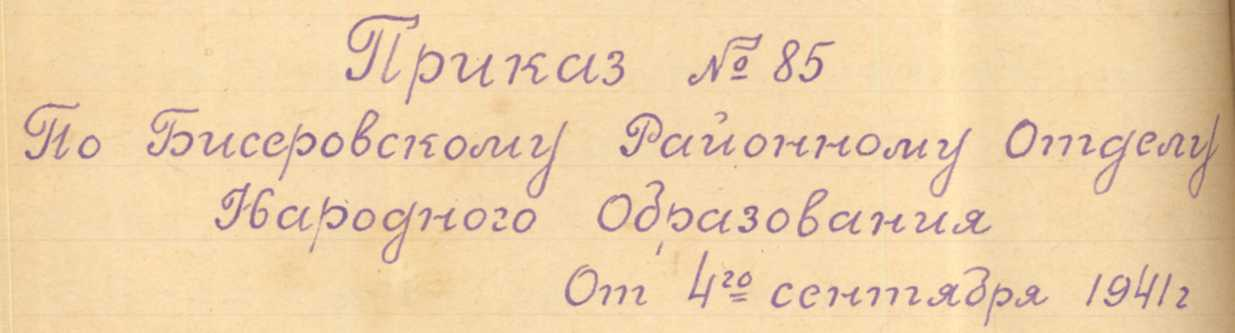 Приказ № 85
По Бисеровскому Районному Отделу
Народного Образования
От 4го сентября 1941г